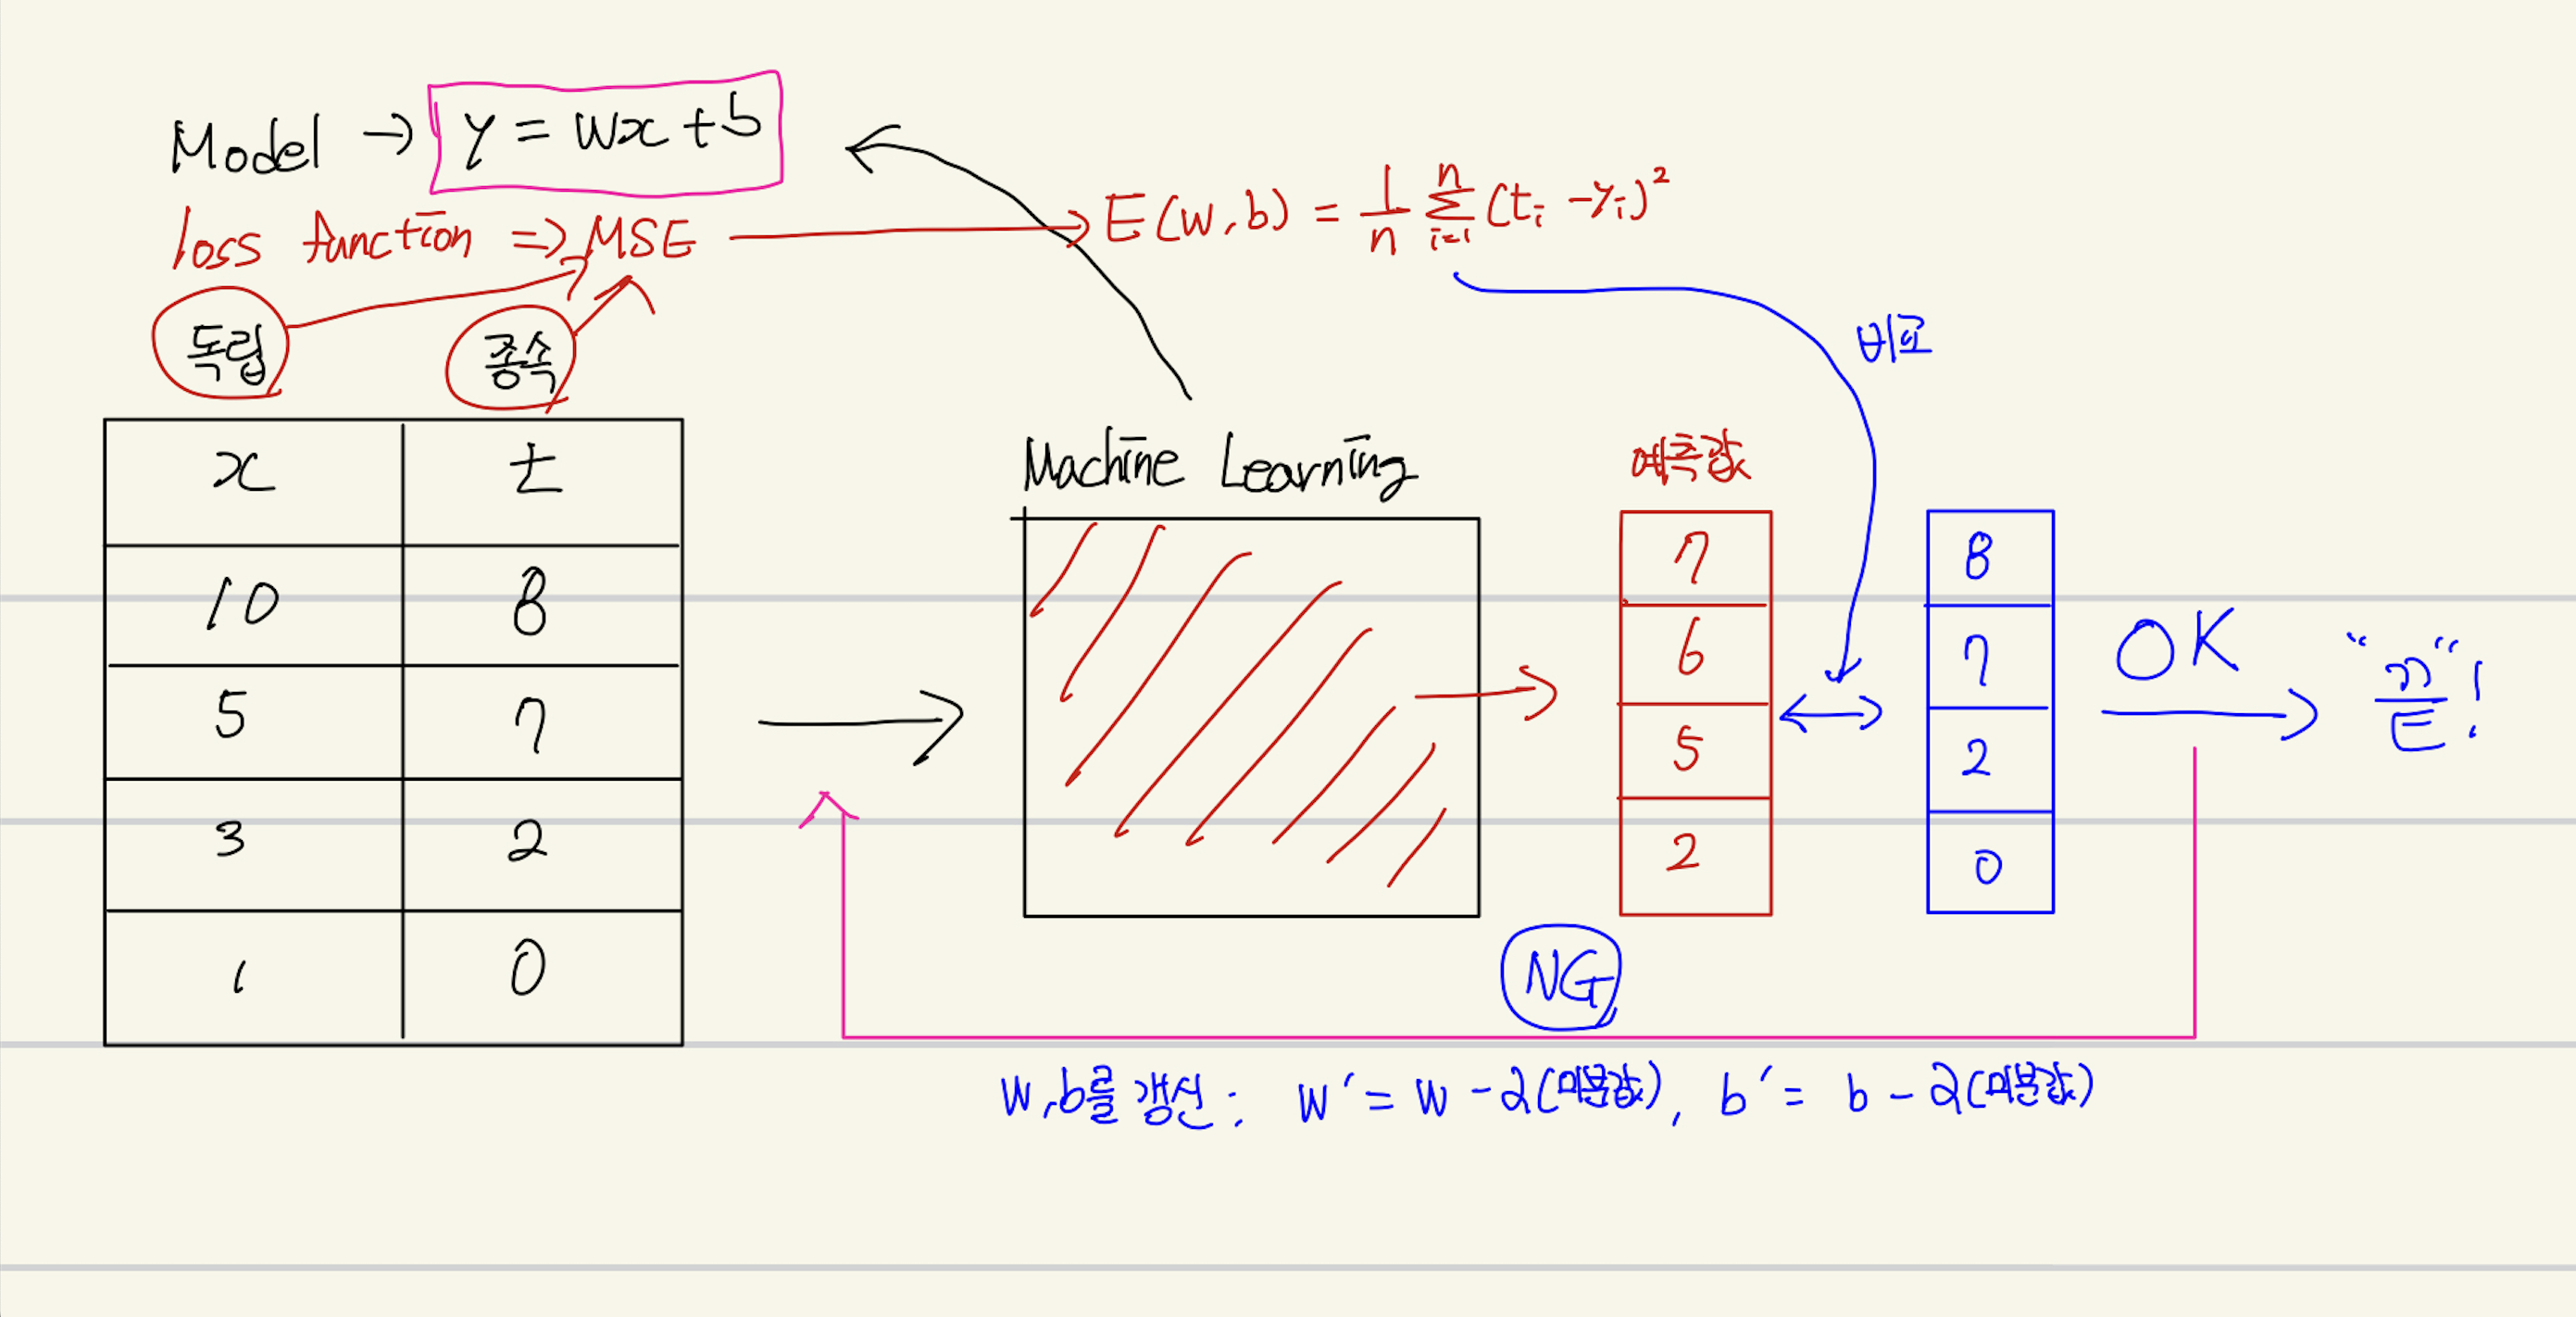 Model → y = wx + b
loss function ⇒ MSE → E(w,b) = 1/n Σ(i=1, n) (ti - yi)²
독립 종속
비교
x t
10 8
5 7
3 2
1 0
Machine Learning
예측값
7
6
5
2
8
7
2
0
OK
"끝"!
NG
w,b를 갱신: w' = w - 2(미분값), b' = b - 2(미분값)